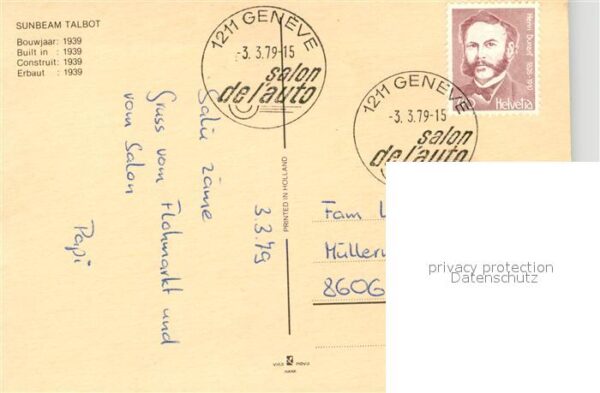 SUNBEAM TALBOT
Bouwjaar: 1939
Built in : 1939
Construit: 1939
Erbaut : 1939
1211 GENÈVE
-3. 3.79-15
salon
de l'auto
1211 GENÈVE
-3. 3.79-15
salon
de l'auto
Henri Dunant 1828-1910
Helvetia
3.3.79
Salü zäme
Gruss vom Flohmarkt und
vom Salon
Papi
PRINTED IN HOLLAND
Fam
Müller
8606
privacy protection
Datenschutz